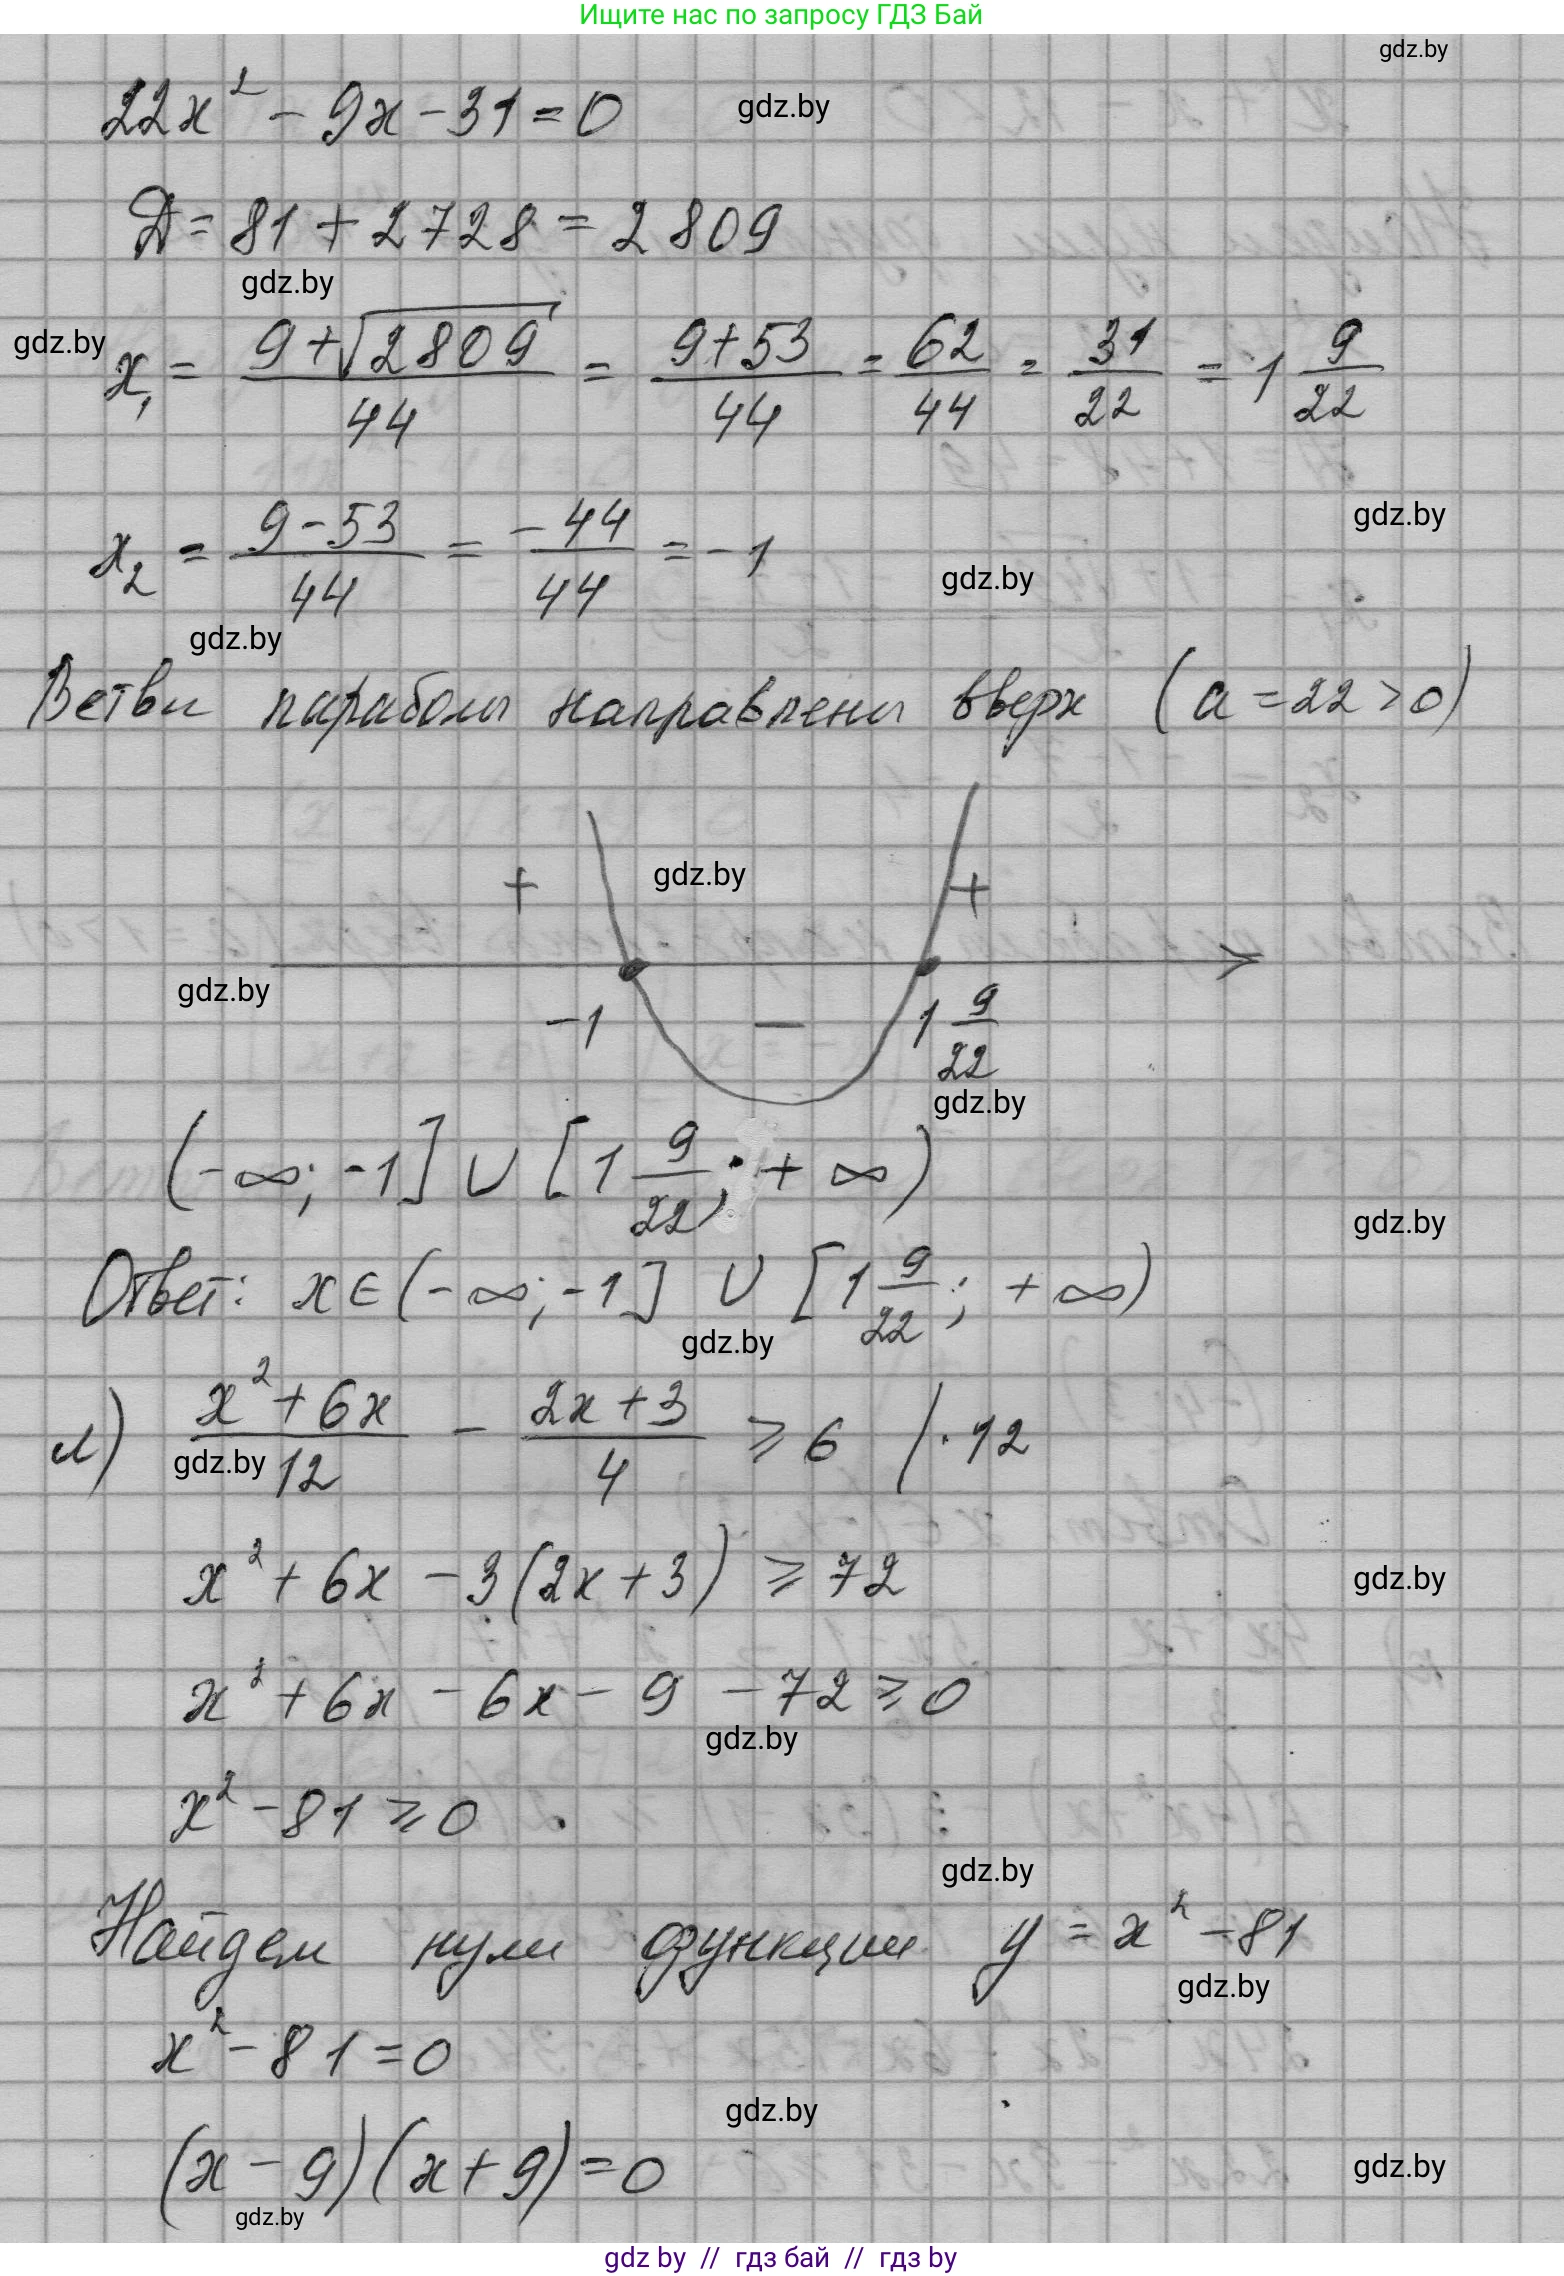 Ищите нас по запросу ГДЗ Бай
gdz.by
22x² - 9x - 31 = 0
gdz.by
Д = 81 + 2728 = 2809
gdz.by
gdz.by
x₁ = (9 + √2809)/44 = (9 + 53)/44 = 62/44 = 31/22 = 1 9/22
gdz.by
x₂ = (9 - 53)/44 = -44/44 = -1
gdz.by
gdz.by
Ветви параболы направлены вверх (a = 22 > 0)
+ gdz.by +
gdz.by
-1 - 1 9/22
gdz.by
(-∞; -1] ∪ [1 9/22; +∞)
gdz.by
Ответ: x ∈ (-∞; -1] ∪ [1 9/22; +∞)
gdz.by
л) (x² + 6x)/12 - (2x + 3)/4 ⩾ 6 / · 12
gdz.by
x² + 6x - 3(2x + 3) ⩾ 72
gdz.by
x² + 6x - 6x - 9 - 72 ⩾ 0
gdz.by
x² - 81 ⩾ 0
gdz.by
Найдем нули функции y = x² - 81
gdz.by
x² - 81 = 0
gdz.by
(x - 9)(x + 9) = 0
gdz.by
gdz.by
gdz by // гдз бай // гдз by